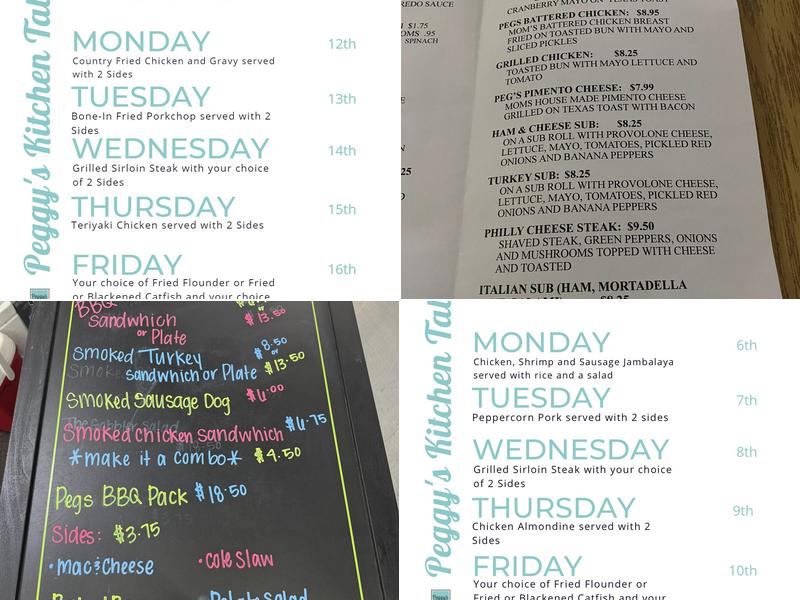 Peggy's Kitchen Tal
MONDAY 12th
Country Fried Chicken and Gravy served
with 2 Sides
TUESDAY 13th
Bone-In Fried Porkchop served with 2
Sides
WEDNESDAY 14th
Grilled Sirloin Steak with your choice
of 2 Sides
THURSDAY 15th
Teriyaki Chicken served with 2 Sides
FRIDAY 16th
Your choice of Fried Flounder or Fried
or Blackened Catfish and your choice
REDO SAUCE
$1.75
OMS .95
SPINACH
CRANBERRY MAYO ON TEXAS TOAST
PEGS BATTERED CHICKEN: $8.95
MOM'S BATTERED CHICKEN BREAST
FRIED ON TOASTED BUN WITH MAYO AND
SLICED PICKLES
GRILLED CHICKEN: $8.25
TOASTED BUN WITH MAYO LETTUCE AND
TOMATO
PEG'S PIMENTO CHEESE: $7.99
MOMS HOUSE MADE PIMENTO CHEESE
GRILLED ON TEXAS TOAST WITH BACON
HAM & CHEESE SUB: $8.25
ON A SUB ROLL WITH PROVOLONE CHEESE,
LETTUCE, MAYO, TOMATOES, PICKLED RED
ONIONS AND BANANA PEPPERS
TURKEY SUB: $8.25
ON A SUB ROLL WITH PROVOLONE CHEESE,
LETTUCE, MAYO, TOMATOES, PICKLED RED
ONIONS AND BANANA PEPPERS
PHILLY CHEESE STEAK: $9.50
SHAVED STEAK, GREEN PEPPERS, ONIONS
AND MUSHROOMS TOPPED WITH CHEESE
AND TOASTED
ITALIAN SUB (HAM, MORTADELLA
BBQ
Sandwhich $13.50
or Plate
Smoked Turkey $8.50
or
sandwhich or Plate $13.50
Smoked Sausage Dog $6.00
The Gobbler Salad
Smoked chicken sandwhich $6.75
*make it a combo* $4.50
Pegs BBQ Pack $18.50
Sides: $3.75
• mac & Cheese • cole Slaw
Potato Salad
Peggy's Kitchen Tal
MONDAY 6th
Chicken, Shrimp and Sausage Jambalaya
served with rice and a salad
TUESDAY 7th
Peppercorn Pork served with 2 sides
WEDNESDAY 8th
Grilled Sirloin Steak with your choice
of 2 Sides
THURSDAY 9th
Chicken Almondine served with 2
Sides
FRIDAY 10th
Your choice of Fried Flounder or
Fried or Blackened Catfish and